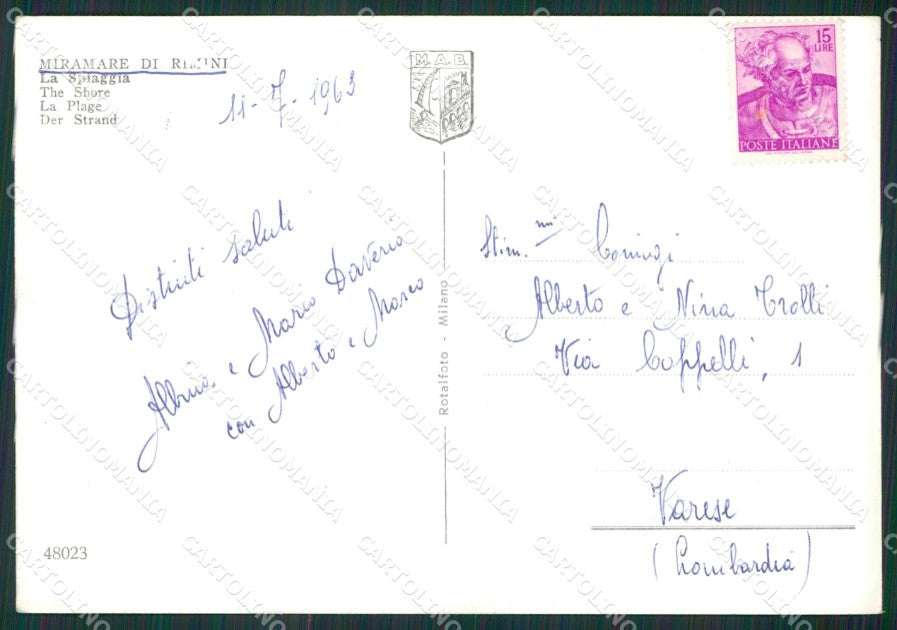 MIRAMARE DI RIMINI
La Spiaggia
The Shore
La Plage
Der Strand
11-7-1963
M.A.B.
15
LIRE
POSTE ITALIANE
Distinti saluti
Albina e Marco Daverio
con Alberto e Marco
Rotalfoto - Milano
Stim.mi Coniugi
Alberto e Nina Trolli
Via Coppelli, 1
Varese
(Lombardia)
48023
CARTOLINOMANIA